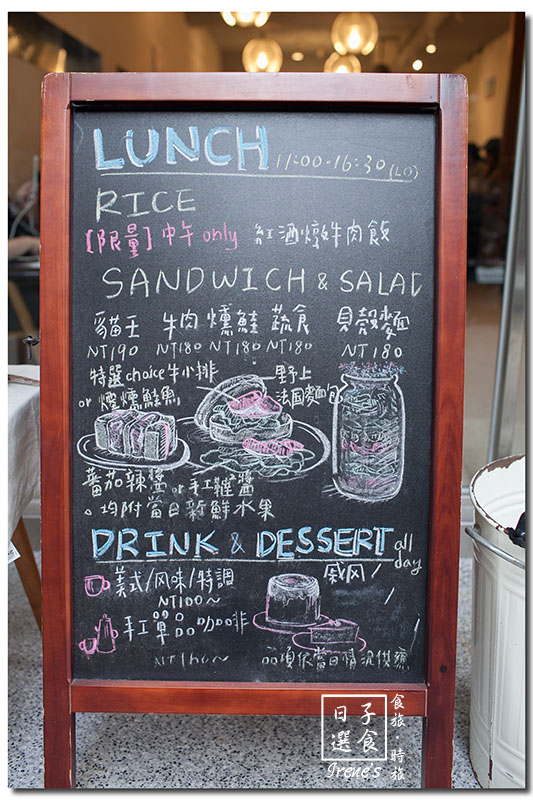 LUNCH 11:00-16:30(LO)
RICE
[限量] 中午 only 紅酒燉牛肉飯
SANDWICH & SALAD
貓王 牛肉 燻鮭 蔬食 貝殼麵
NT190 NT180 NT180 NT180 NT180
特選choice牛小排
or 煙燻鮭魚
野上
法國麵包
蕃茄辣醬 or 手工雜醬
。均附當日新鮮水果
DRINK & DESSERT all day
美式/风味/特調
NT100~
戚风/
手工單品咖啡
品項依當日情況供應
日子
選食
Irene's
食旅·時旅